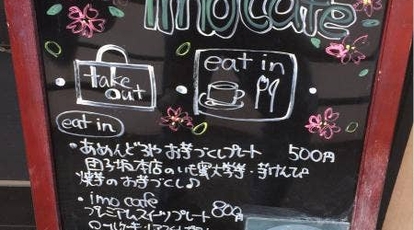 imo cafe
take out
eat in
eat in
・あめんどろや お芋づくしプレート 500円
団子坂本店のいも蜜大学芋・芋けんぴ
焼芋のお芋づくし♪
・imo cafe
プレミアムスイーツプレート 800円
ロールケーキ・